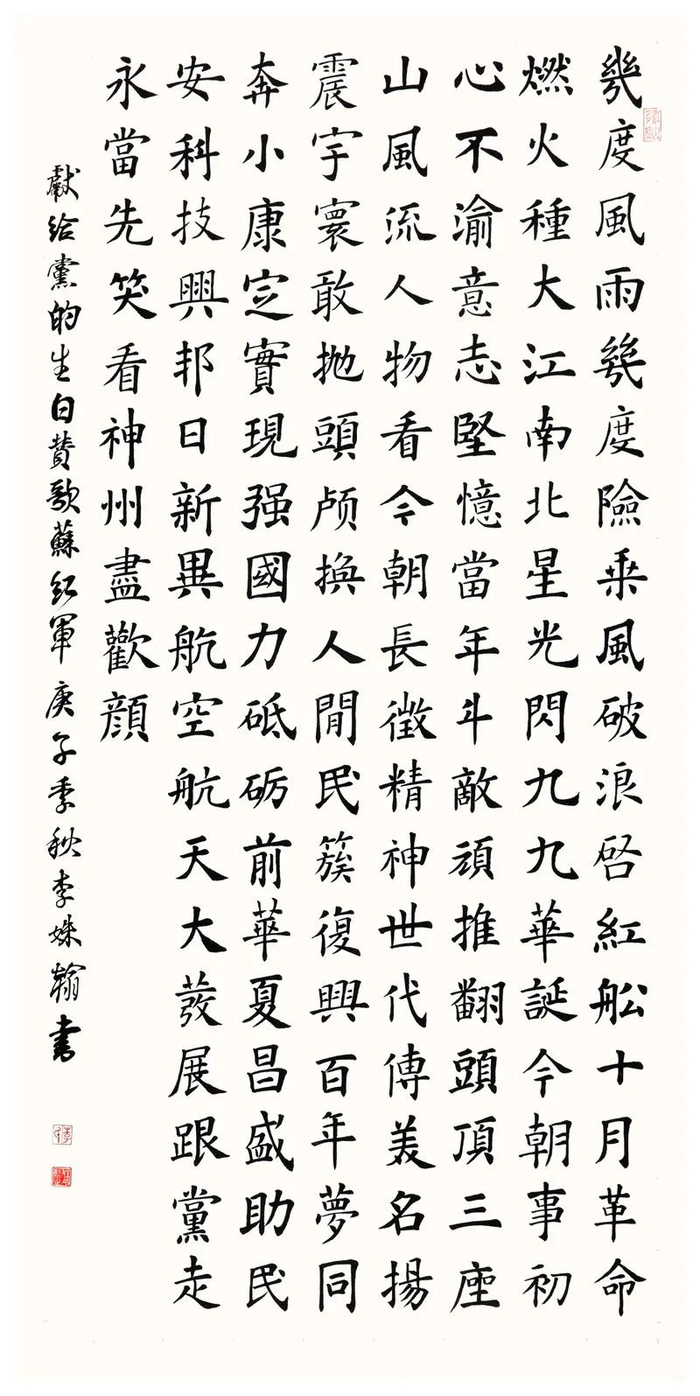 幾度風雨幾度險乗風破浪啓紅船十月革命
燃火種大江南北星光閃九九華誕今朝事初
心不渝意志堅憶當年斗敵頑推翻頭頂三座
山風流人物看今朝長徵精神世代傳美名揚
震宇寰敢抛頭颅换人間民簇復興百年夢同
奔小康定實現强國力砥砺前華夏昌盛助民
安科技興邦日新異航空航天大發展跟黨走
永當先笑看神州盡歡顔
獻给黨的生日贊歌蘇红軍庚子季秋李姝翰書